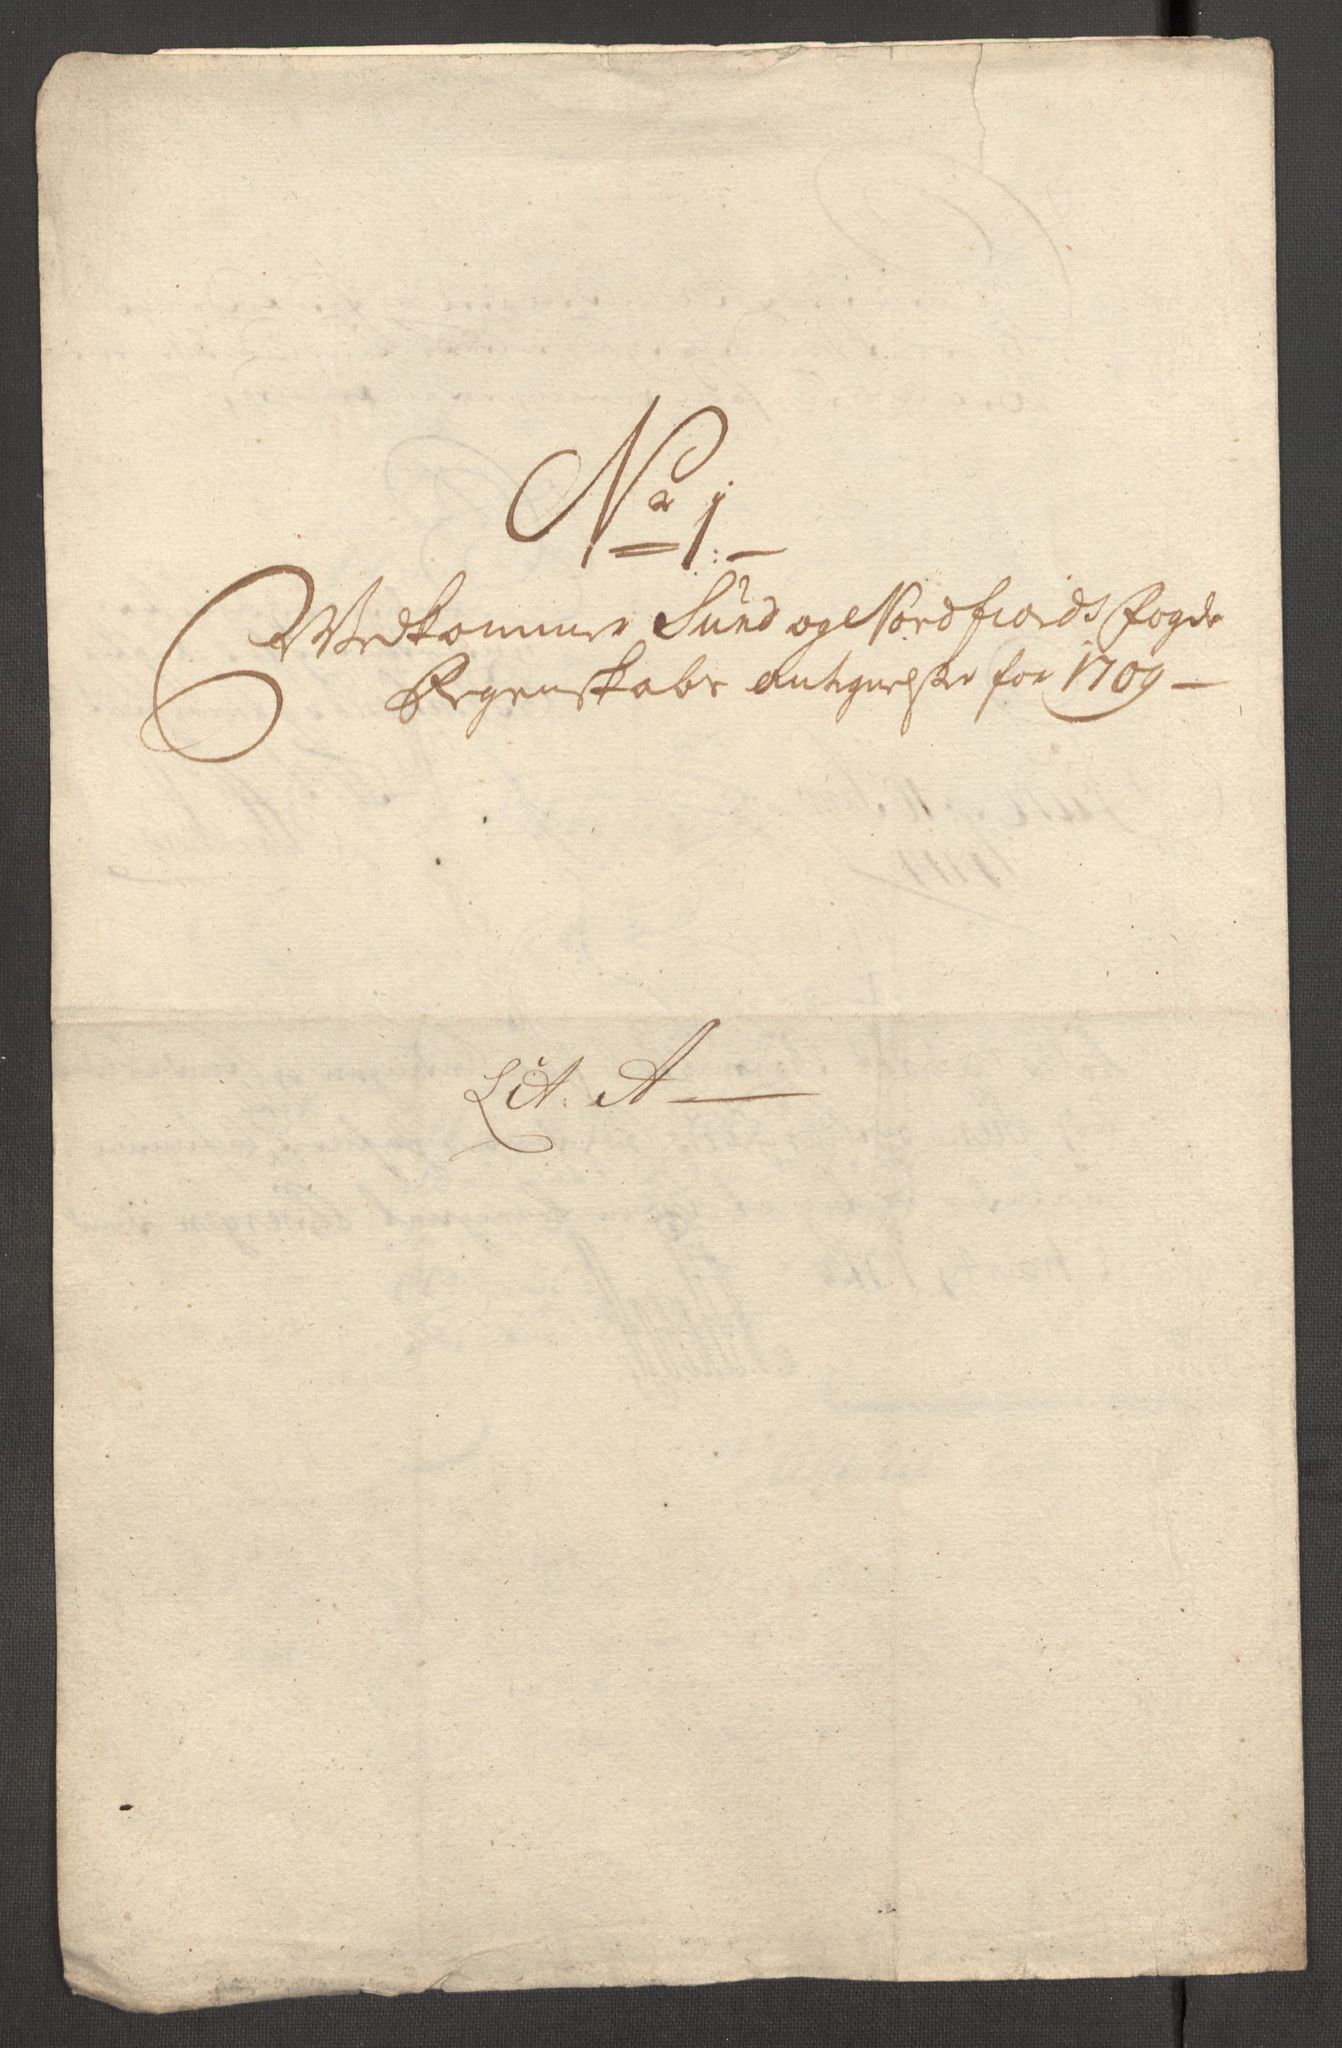 No 1:
Vedkommer Sund og Nordfiords Fogde
Regenskabs Antegnelser for 1709
Lit. A